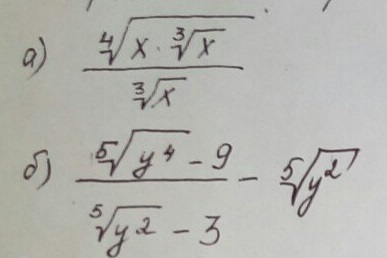 а) \frac{\sqrt[4]{x \cdot \sqrt[3]{x}}}{\sqrt[3]{x}}
б) \frac{\sqrt[5]{y^4} - 9}{\sqrt[5]{y^2} - 3} - \sqrt[5]{y^2}